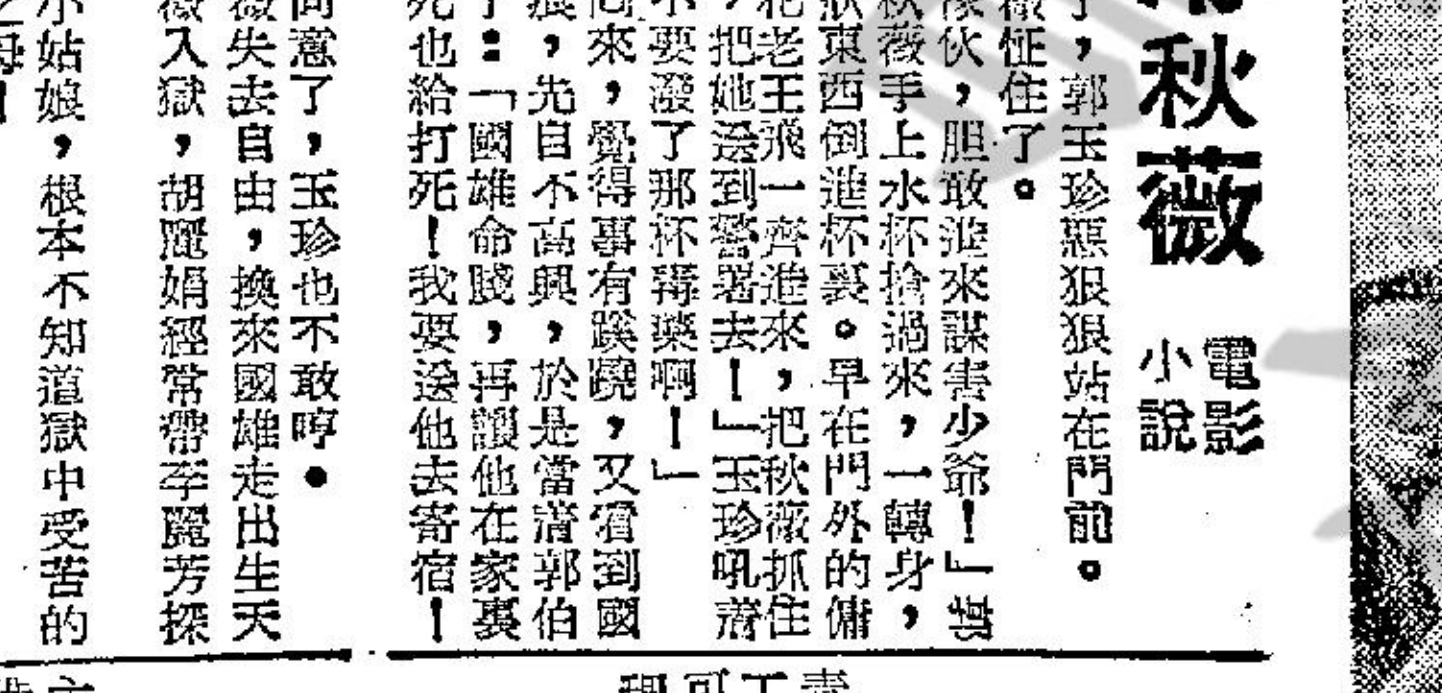 秋薇
電影
小說
了，郭玉珍惡狠狠站在門前。
薇怔住了。
傢伙，胆敢進來謀害少爺！」
秋薇手上水杯搶過來，一轉身，
東西倒進杯裏。早在門外的傭
花老王飛一齊進來，把秋薇抓住
，把她送到警署去！」玉珍吼着
不要潑了那杯毒藥啊！」
來，覺得事有蹊蹺，又看到國
痕，先自不高興，於是當着郭伯
了：「國雄命賤，再讓他在家裏
死也給打死！我要送他去寄宿！
同意了，玉珍也不敢哼。
薇失去自由，換來國雄走出生天
薇入獄，胡麗娟經常帶李麗芳探
小姑娘，根本不知道獄中受苦的